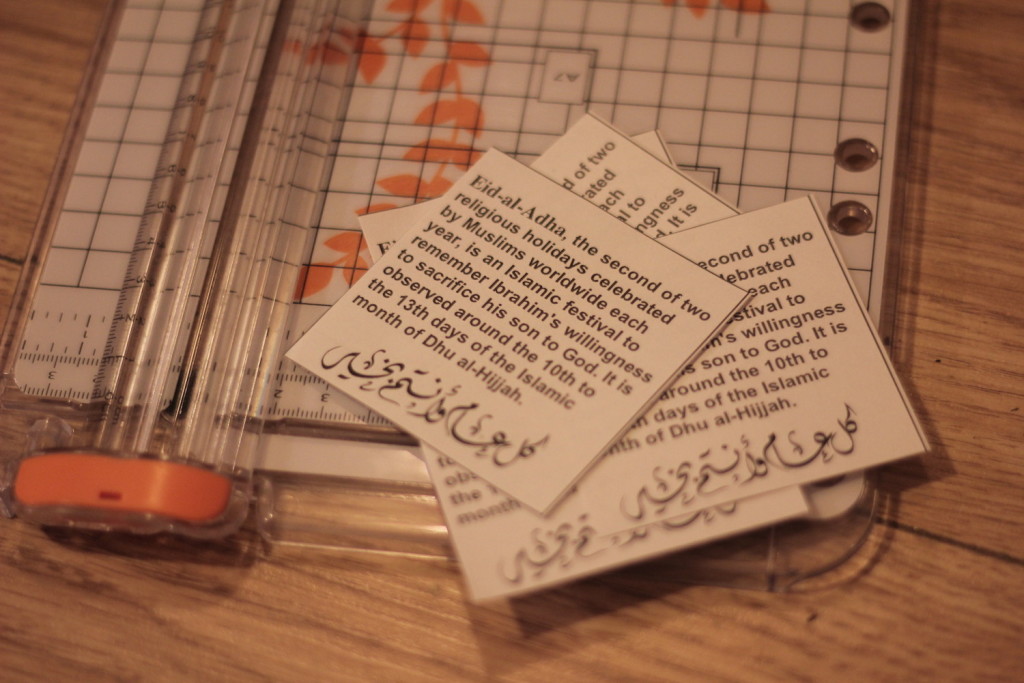 A7
Eid-al-Adha, the second of two
religious holidays celebrated
by Muslims worldwide each
year, is an Islamic festival to
remember Ibrahim's willingness
to sacrifice his son to God. It is
observed around the 10th to
the 13th days of the Islamic
month of Dhu al-Hijjah.
كل عام وأنتم بخير
d of two
each
to
ngness
It is
second of two
lebrated
each
stival to
's willingness
son to God. It is
around the 10th to
days of the Islamic
nth of Dhu al-Hijjah.
كل عام وأنتم بخير
the
month
بخير
3
2
3